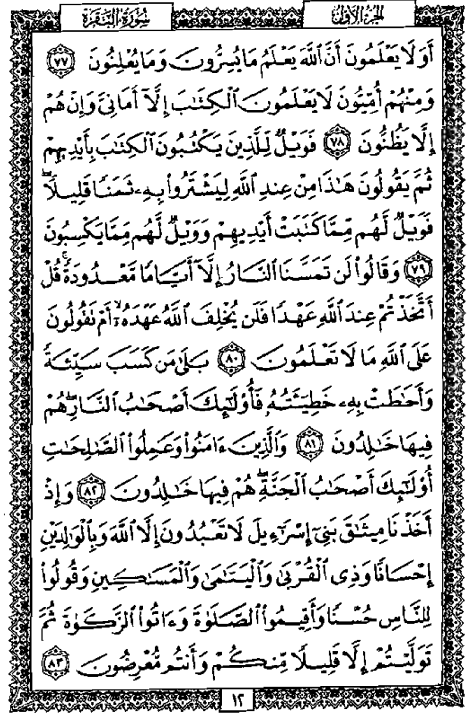 سُورَةُ البَقَرَةِ
الجزء الأول
أَوَلَا يَعْلَمُونَ أَنَّ ٱللَّهَ يَعْلَمُ مَا يُسِرُّونَ وَمَا يُعْلِنُونَ ٧٧
وَمِنْهُمْ أُمِّيُّونَ لَا يَعْلَمُونَ ٱلْكِتَٰبَ إِلَّآ أَمَانِىَّ وَإِنْ هُمْ
إِلَّا يَظُنُّونَ ٧٨ فَوَيْلٌ لِّلَّذِينَ يَكْتُبُونَ ٱلْكِتَٰبَ بِأَيْدِيهِمْ
ثُمَّ يَقُولُونَ هَٰذَا مِنْ عِندِ ٱللَّهِ لِيَشْتَرُوا۟ بِهِۦ ثَمَنًا قَلِيلًا ۖ
فَوَيْلٌ لَّهُم مِّمَّا كَتَبَتْ أَيْدِيهِمْ وَوَيْلٌ لَّهُم مِّمَّا يَكْسِبُونَ
٧٩ وَقَالُوا۟ لَن تَمَسَّنَا ٱلنَّارُ إِلَّآ أَيَّامًا مَّعْدُودَةً ۚ قُلْ
أَتَّخَذْتُمْ عِندَ ٱللَّهِ عَهْدًا فَلَن يُخْلِفَ ٱللَّهُ عَهْدَهُۥٓ ۖ أَمْ تَقُولُونَ
عَلَى ٱللَّهِ مَا لَا تَعْلَمُونَ ٨٠ بَلَىٰ مَن كَسَبَ سَيِّئَةً
وَأَحَٰطَتْ بِهِۦ خَطِيٓـَٔتُهُۥ فَأُو۟لَٰٓئِكَ أَصْحَٰبُ ٱلنَّارِ ۖ هُمْ
فِيهَا خَٰلِدُونَ ٨١ وَٱلَّذِينَ ءَامَنُوا۟ وَعَمِلُوا۟ ٱلصَّٰلِحَٰتِ
أُو۟لَٰٓئِكَ أَصْحَٰبُ ٱلْجَنَّةِ ۖ هُمْ فِيهَا خَٰلِدُونَ ٨٢ وَإِذْ
أَخَذْنَا مِيثَٰقَ بَنِىٓ إِسْرَٰٓءِيلَ لَا تَعْبُدُونَ إِلَّا ٱللَّهَ وَبِٱلْوَٰلِدَيْنِ
إِحْسَانًا وَذِى ٱلْقُرْبَىٰ وَٱلْيَتَٰمَىٰ وَٱلْمَسَٰكِينِ وَقُولُوا۟
لِلنَّاسِ حُسْنًا وَأَقِيمُوا۟ ٱلصَّلَوٰةَ وَءَاتُوا۟ ٱلزَّكَوٰةَ ثُمَّ
تَوَلَّيْتُمْ إِلَّا قَلِيلًا مِّنكُمْ وَأَنتُم مُّعْرِضُونَ ٨٣
١٢